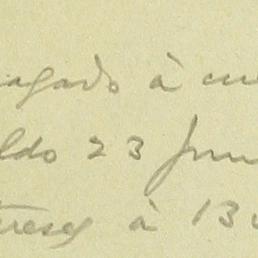 agado à cu
ldo 23 Jun
teresy à 13